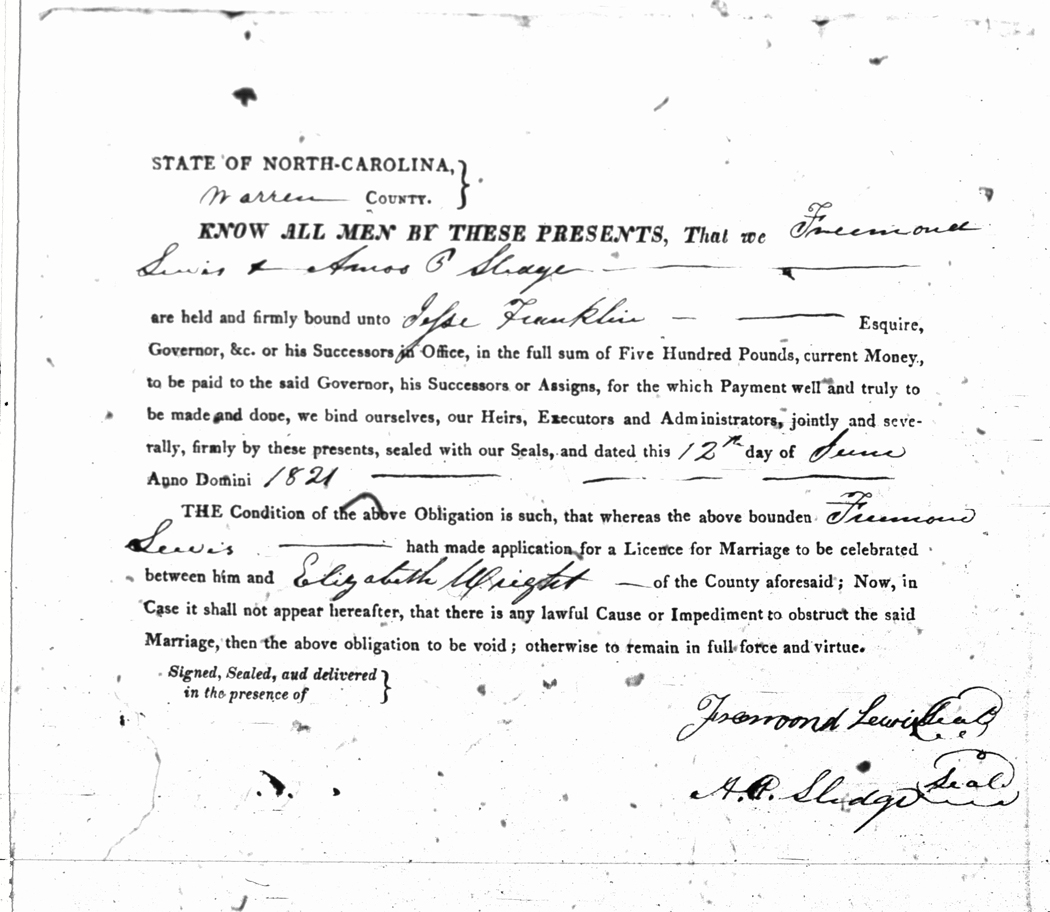 STATE OF NORTH-CAROLINA,}
Warren COUNTY.
KNOW ALL MEN BY THESE PRESENTS, That we Freemond
Lewis & Amos P Sledge
are held and firmly bound unto Jesse Franklin Esquire,
Governor, &c. or his Successors in Office, in the full sum of Five Hundred Pounds, current Money,
to be paid to the said Governor, his Successors or Assigns, for the which Payment well and truly to
be made and done, we bind ourselves, our Heirs, Executors and Administrators, jointly and seve-
rally, firmly by these presents, sealed with our Seals, and dated this 12th day of June
Anno Domini 1821
THE Condition of the above Obligation is such, that whereas the above bounden Freemond
Lewis hath made application for a Licence for Marriage to be celebrated
between him and Elizabeth Wright of the County aforesaid; Now, in
Case it shall not appear hereafter, that there is any lawful Cause or Impediment to obstruct the said
Marriage, then the above obligation to be void; otherwise to remain in full force and virtue.
Signed, Sealed, and delivered}
in the presence of
Freemond Lewis Seal
A. P. Sledge Seal